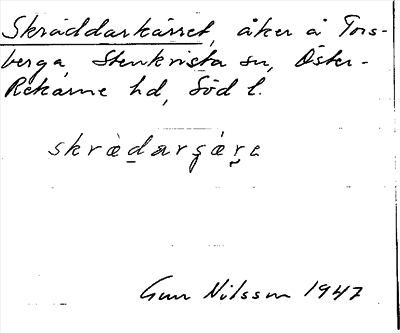 Skräddarkärret, åker å Tors-
berga, Stenkvista sn, Öster-
Rekarne hd, Söd l.
skræ̀d̠arʂǽr̥e
Gun Nilsson 1947